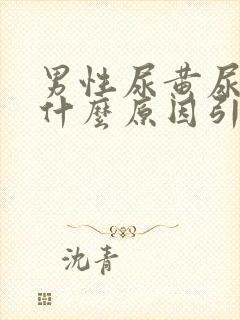 男性尿黄尿
什麼原因引
沈青